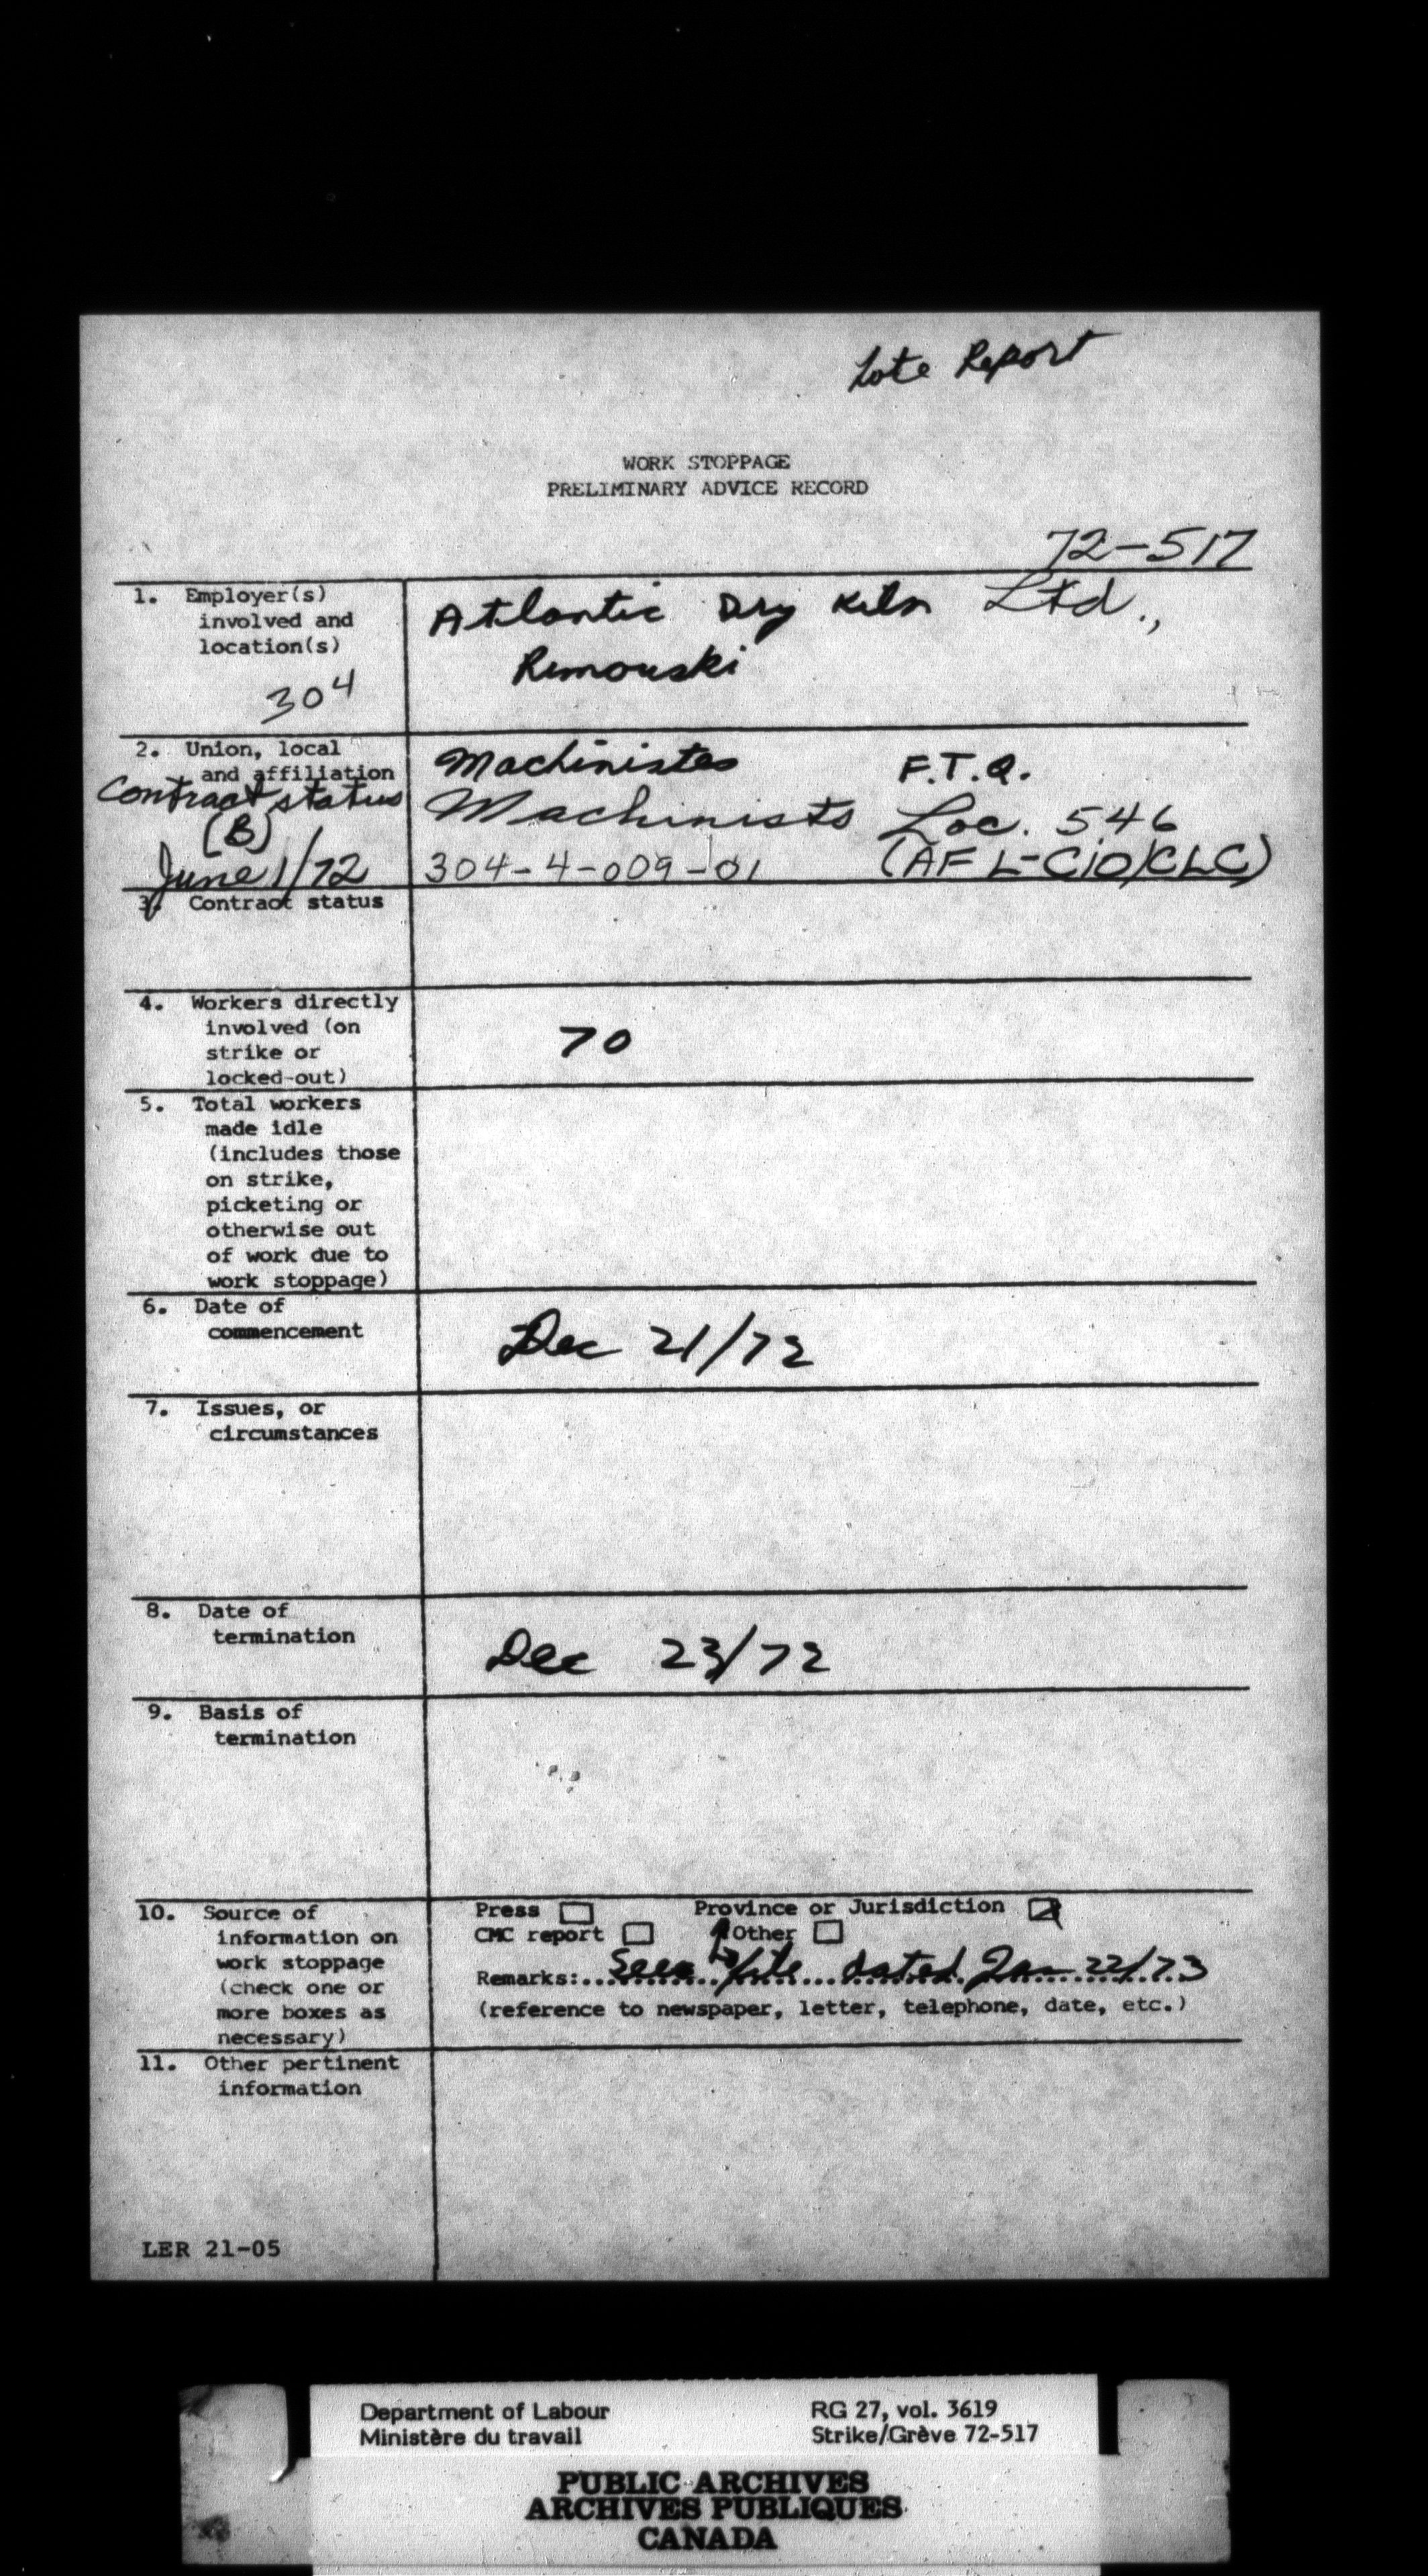 Late Report
WORK STOPPAGE
PRELIMINARY ADVICE RECORD
72-517
1. Employer(s)
involved and
location(s)
304
Atlantic Dry Kiln Ltd.,
Rimouski
2. Union, local
and affiliation
Contract status
(B)
June 1/72
Machinistes F.T.Q.
Machinists Loc. 546
304-4-009-01 (AFL-CIO/CLC)
3. Contract status
4. Workers directly
involved (on
strike or
locked-out)
70
5. Total workers
made idle
(includes those
on strike,
picketing or
otherwise out
of work due to
work stoppage)
6. Date of
commencement
Dec 21/72
7. Issues, or
circumstances
8. Date of
termination
Dec 23/72
9. Basis of
termination
10. Source of
information on
work stoppage
(check one or
more boxes as
necessary)
Press Province or Jurisdiction
CMC report Other
Remarks: dated Jan 22/73
(reference to newspaper, letter, telephone, date, etc.)
11. Other pertinent
information
LER 21-05
Department of Labour RG 27, vol. 3619
Ministère du travail Strike/Grève 72-517
PUBLIC ARCHIVES
ARCHIVES PUBLIQUES
CANADA